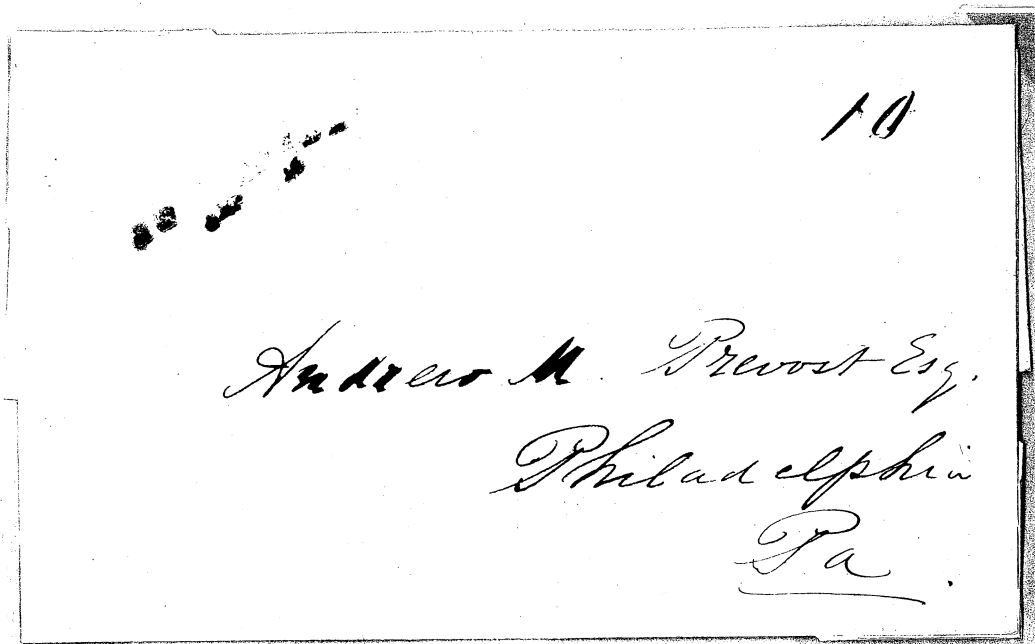 10
Andrew M. Prevost Esq.
Philadelphia
Pa.